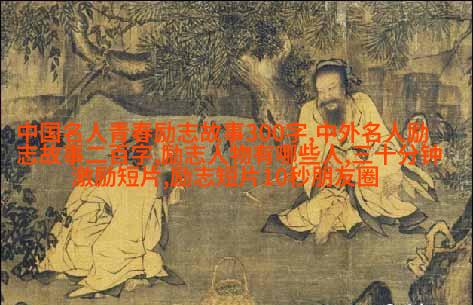 中国名人青春励志故事300字,中外名人励
志故事二百字,励志人物有哪些人,三十分钟
激励短片,励志短片10秒朋友圈